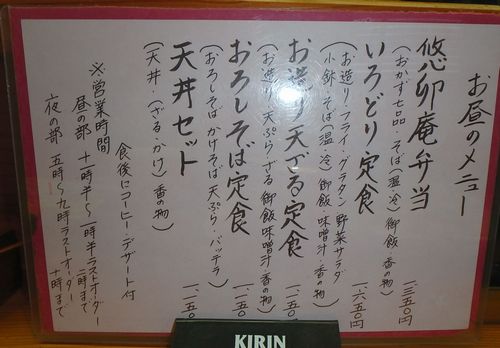 お昼のメニュー
悠卯庵弁当
(おかず七品・そば(温・冷)御飯・香の物) 一、三五〇円
いろどり定食
(お造り・フライ・グラタン・野菜サラダ
小鉢・そば(温・冷)御飯・味噌汁・香の物) 一、六五〇円
お造り天ざる定食
(お造り・天ぷら・ざる・御飯・味噌汁・香の物) 一、二五〇
おろしそば定食
(おろしそば・かけそば・天ぷら・バッテラ) 一、二五〇
天丼セット
(天丼・(ざる・かけ)香の物) 一、一五〇
食後にコーヒー・デザート付
※営業時間
昼の部 十一時半〜一時半ラストオーダー
二時まで
夜の部 五時〜九時ラストオーダー
十時まで
KIRIN